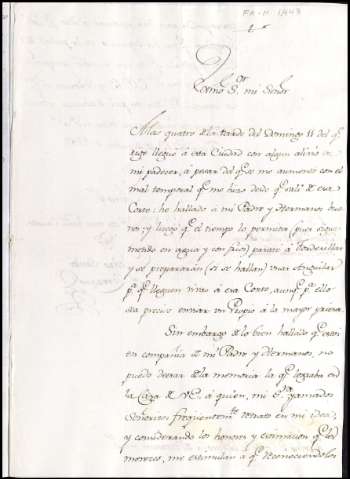 FA-M. 1443
Exmo. Sor. mi Señor
A las quatro de la tarde del Domingo 11 del q.e
rige llegué á esta Ciudad con algun alivio en
mi padecer, á pesar del q.e me aumentó con el
mal temporal q.e me hizo desde q.e salí de esa
Corte: he hallado á mi Padre y Hermanos bue
nos; y luego q.e el tiempo lo permita (pues sigue
en agua y con frio) pasaré á
y se prepararán (si se hallan) las Anguilas
p.a q.e lleguen vivas á esa Corte, aunq.e p.a ello
sea preciso enviar un Propio á la mayor priesa.
Sin embargo de lo bien hallado q.e estoi
en compañia de mi Padre y Hermanos, no
puedo dexar de la memoria la q.e lograba en
la Casa de VE. á quien, mi S.ra y amados
Señoritos freqüentem.te retrato en mi idea;
y considerando los honores y estimacion q.e les
merezco, me estimulan á q.e reconociendolos